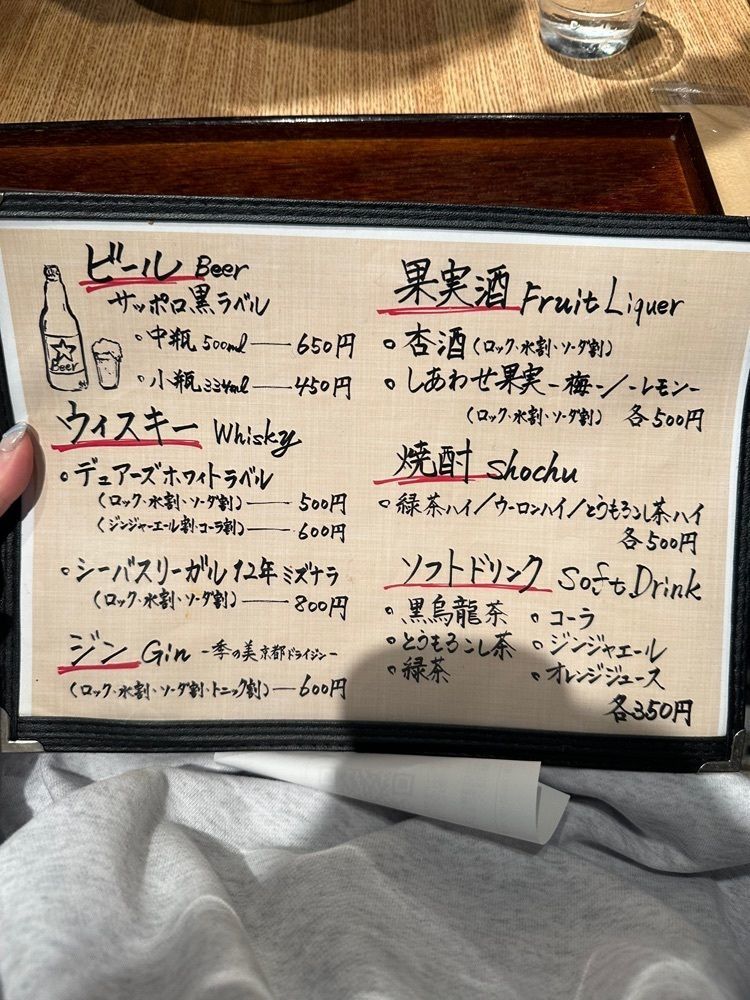 ビール Beer
サッポロ黒ラベル
・中瓶 500ml —— 650円
・小瓶 334ml —— 450円
Beer
ウィスキー Whisky
・デュアーズホワイトラベル
(ロック・水割・ソーダ割) —— 500円
(ジンジャーエール割・コーラ割) —— 600円
・シーバスリーガル12年ミズナラ
(ロック・水割・ソーダ割) —— 800円
ジン Gin -季の美京都ドライジン-
(ロック・水割・ソーダ割・トニック割) —— 600円
果実酒 Fruit Liquer
・杏酒(ロック・水割・ソーダ割)
・しあわせ果実-梅-/-レモン-
(ロック・水割・ソーダ割) 各500円
焼酎 Shochu
・緑茶ハイ/ウーロンハイ/とうもろこし茶ハイ
各500円
ソフトドリンク Soft Drink
・黒烏龍茶 ・コーラ
・とうもろこし茶 ・ジンジャエール
・緑茶 ・オレンジジュース
各350円